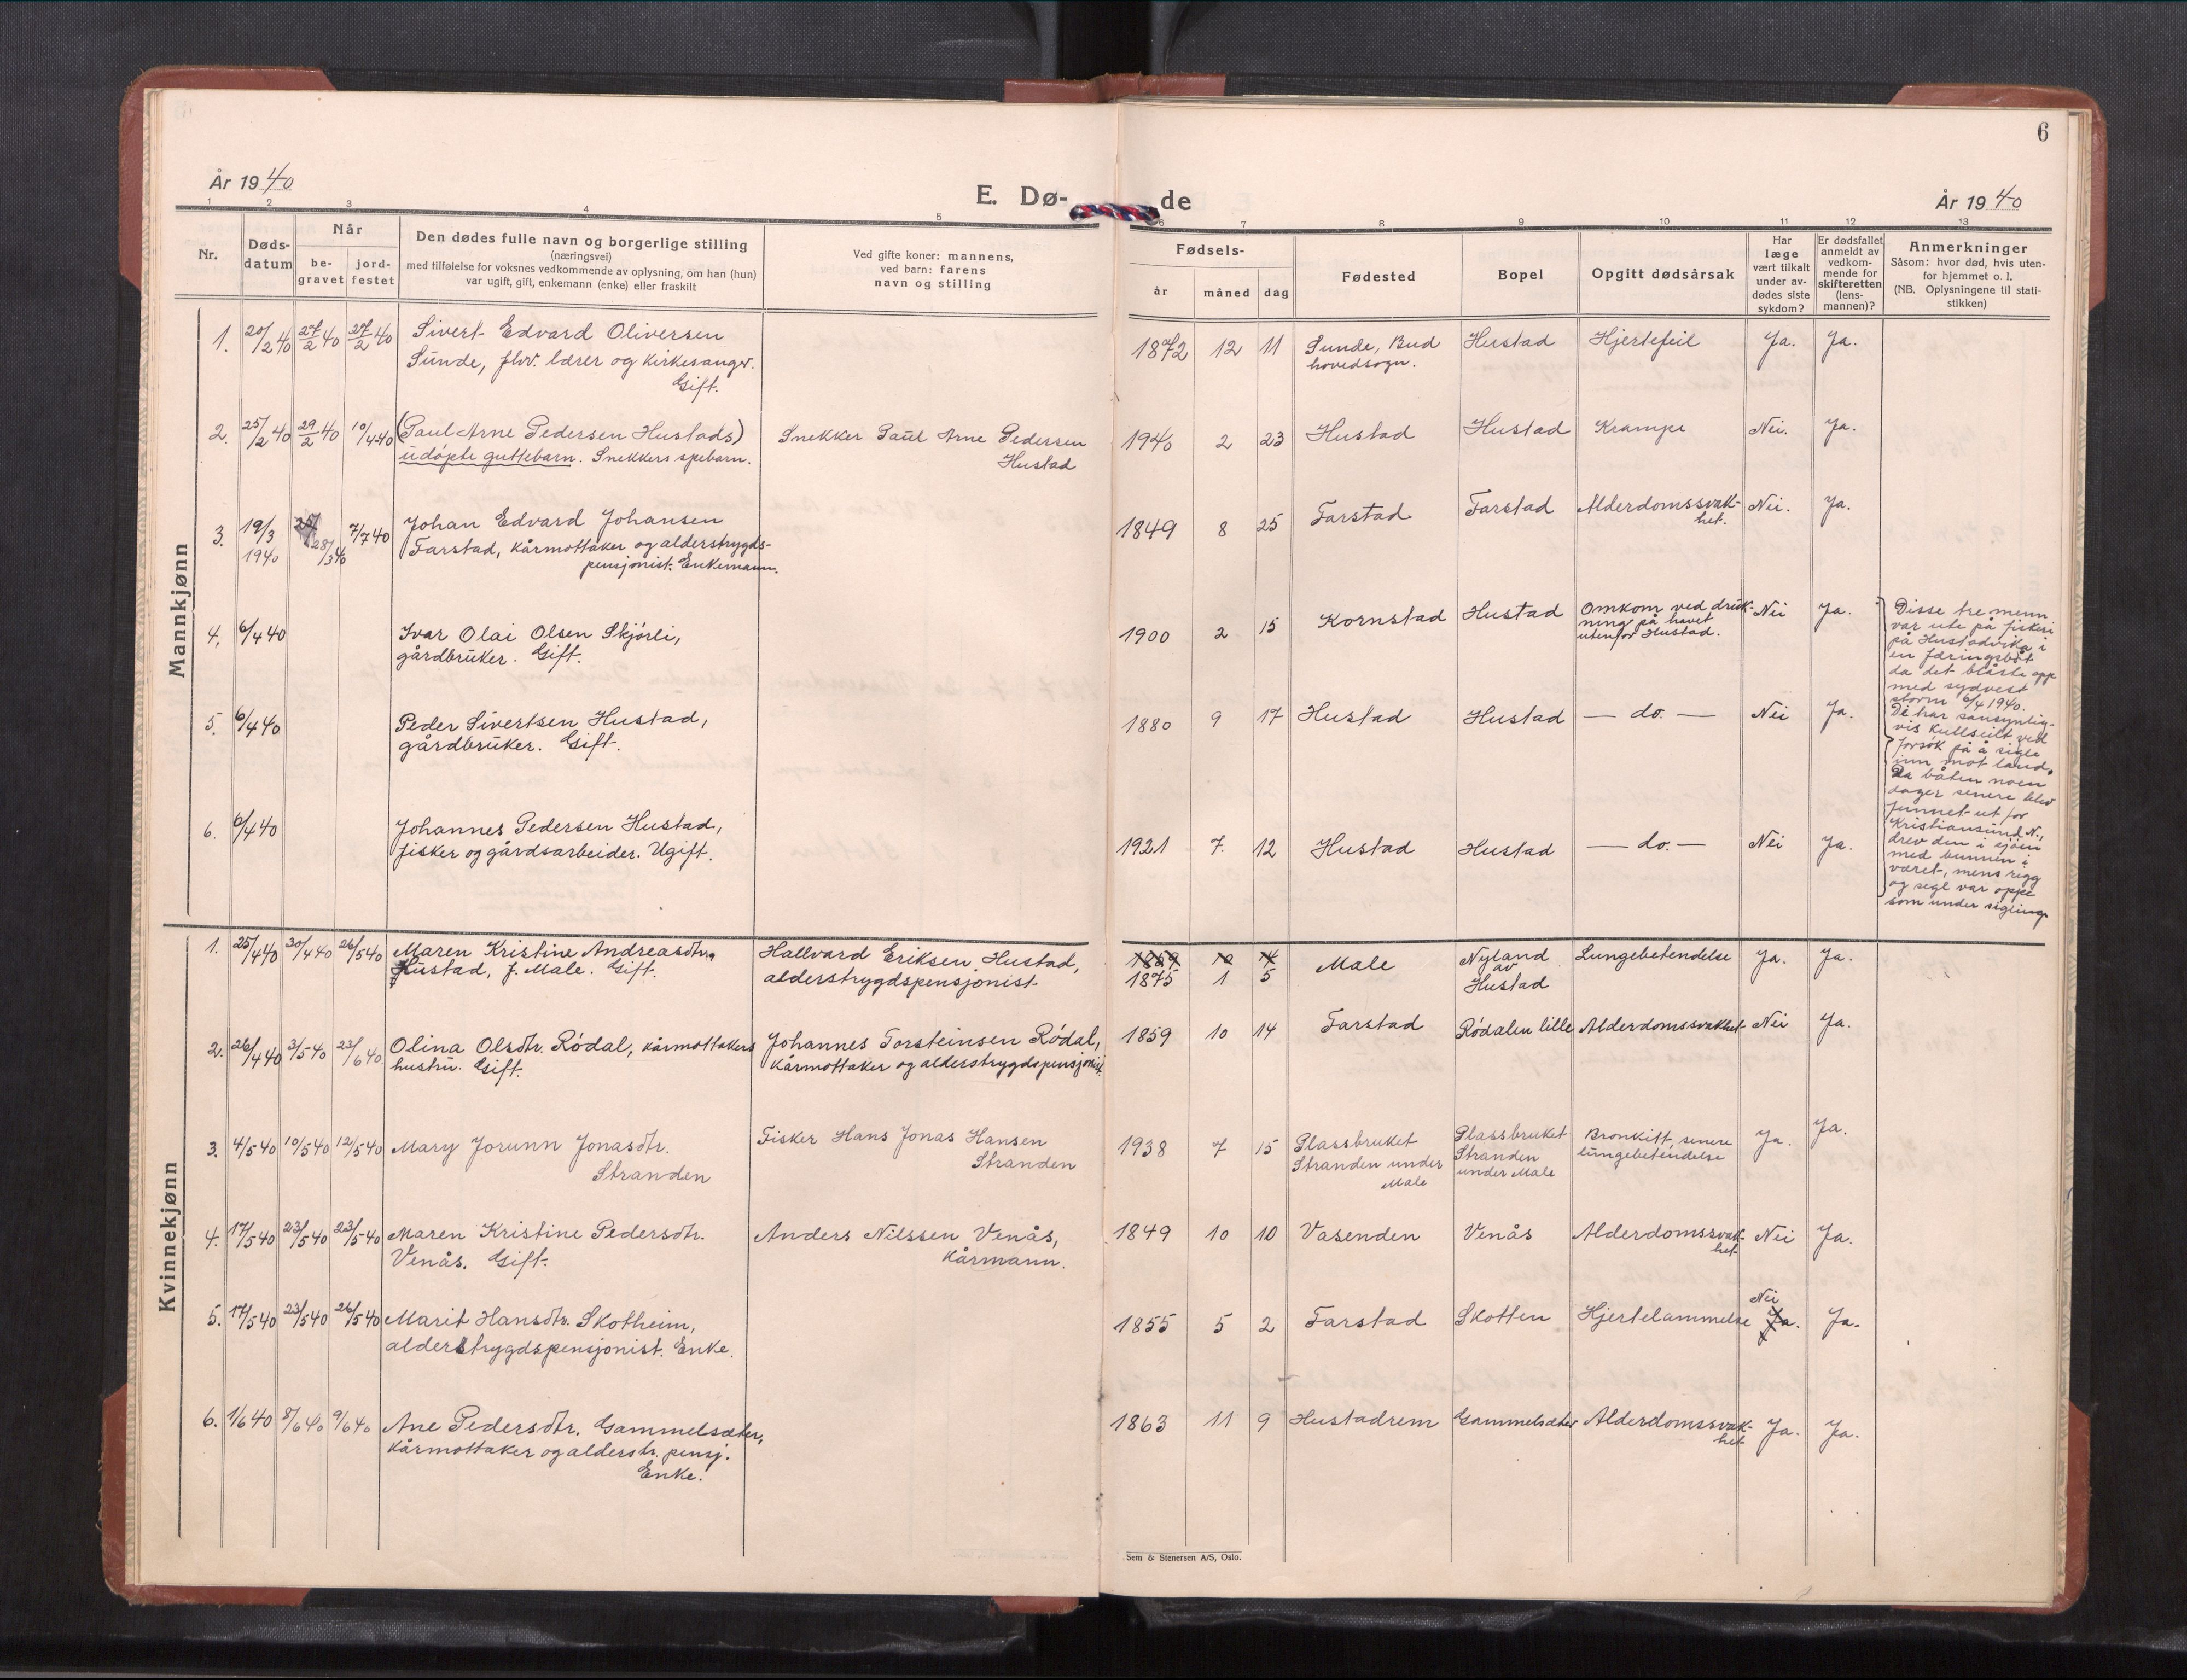 6
År 1940
E. Dø-
de
År 1940
1 2 3 4 5 6 7 8 9 10 11 12 13
Nr.
Døds-
datum
Når
be-
gravet
jord-
festet
Den dødes fulle navn og borgerlige stilling
(næringsvei)
med tilføielse for voksnes vedkommende av oplysning, om han (hun)
var ugift, gift, enkemann (enke) eller fraskilt
Ved gifte koner: mannens,
ved barn: farens
navn og stilling
Fødsels-
år måned dag
Fødested
Bopel
Opgitt dødsårsak
Har
læge
vært tilkalt
under av-
dødes siste
sykdom?
Er dødsfallet
anmeldt av
vedkom-
mende for
skifteretten
(lens-
mannen)?
Anmerkninger
Såsom: hvor død, hvis uten-
for hjemmet o. l.
(NB. Oplysningene til stati-
stikken)
Mannkjønn
1. 20/2 40 27/2 40 27/2 40 Sivert Edvard Oliversen
Sunde, fhv. lærer og kirkesanger.
Gift.
1872 12 11 Sunde, Bud
hovedsogn.
Hustad Hjertefeil Ja. Ja.
2. 25/2 40 29/2 40 10/4 40 (Paul Arne Pedersen Hustads)
udøpte guttebarn. Snekkers spebarn.
Snekker Paul Arne Pedersen
Hustad
1940 2 23 Hustad Hustad Krampe Nei. Ja.
3. 19/3
1940
28/3 40
7/7 40 Johan Edvard Johansen
Farstad, kårmottaker og alderstrygds-
pensjonist. Enkemann.
1849 8 25 Farstad Farstad Alderdomssvak-
het.
Nei. Ja.
4. 6/4 40 Ivar Olai Olsen Skjørli,
gårdbruker. Gift.
1900 2 15 Kornstad Hustad Omkom ved druk-
ning på havet
utenfor Hustad.
Nei Ja.
5. 6/4 40 Peder Sivertsen Hustad,
gårdbruker. Gift.
1880 9 17 Hustad Hustad — do. — Nei Ja.
6. 6/4 40 Johannes Pedersen Hustad,
fisker og gårdsarbeider. Ugift.
1921 7. 12 Hustad Hustad — do. — Nei Ja.
Disse tre menn
var ute på fiskeri
på Hustadvika i
en færingsbåt
da det blåste opp
med sydvest
storm 6/4 1940.
De har sansynlig-
vis kullseilt ved
forsøk på å sigle
inn mot land.
Da båten noen
dager senere blev
funnet ut for
Kristiansund N.,
drev den i sjøen
med bunnen i
været, mens rigg
og segl var oppe
som under sigling.
Kvinnekjønn
1. 25/4 40 30/4 40 26/5 40 Maren Kristine Andreasdtr.
Hustad, f. Male. Gift.
Hallvard Eriksen Hustad,
alderstrygdspensjonist
1859 10 14
1875 1 5
Male
Nyland
av
Hustad
Lungebetendelse Ja. Ja.
2. 26/4 40 3/5 40 23/6 40 Olina Olsdtr. Rødal, kårmottakers
hustru. Gift.
Johannes Torsteinsen Rødal,
kårmottaker og alderstrygdspensjonist.
1859 10 14 Farstad Rødalen lille Alderdomssvakhet Nei Ja.
3. 4/5 40 10/5 40 12/5 40 Mary Jorunn Jonasdtr.
Stranden
Fisker Hans Jonas Hansen
Stranden
1938 7 15 Plassbruket
Stranden under
Male
Plassbruket
Stranden
under Male
Bronkitt, senere
lungebetendelse
Ja. Ja.
4. 17/5 40 23/5 40 23/5 40 Maren Kristine Pedersdtr.
Venås. Gift.
Anders Nilssen Venås,
kårmann.
1849 10 10 Vasenden Venås Alderdomssvak-
het
Nei Ja.
5. 17/5 40 23/5 40 26/5 40 Marit Hansdtr. Skotheim,
alderstrygdspensjonist. Enke.
1855 5 2 Farstad Skotten Hjertelammelse
Nei
Ja. Ja.
6. 1/6 40 8/6 40 9/6 40 Ane Pedersdtr. Gammelsæter,
kårmottaker og alderstr. pensj.
Enke.
1863 11 9 Hustadrem Gammelsæter Alderdomssvak-
het
Ja. Ja.
Sem & Stenersen A/S, Oslo.